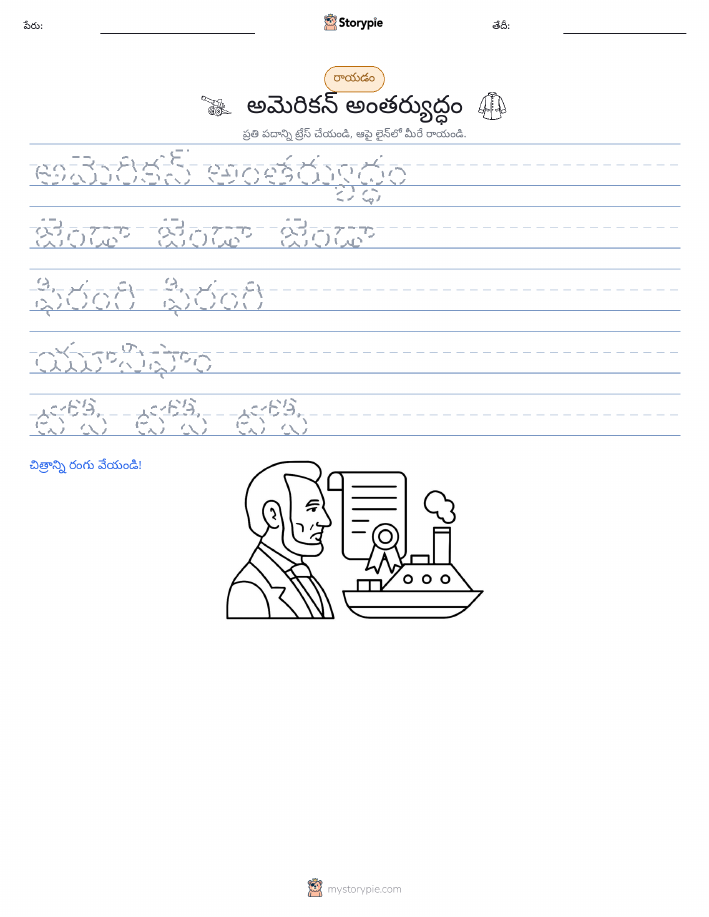 పేరు:
Storypie
తేదీ:
రాయడం
అమెరికన్ అంతర్యుద్ధం
ప్రతి పదాన్ని ట్రేస్ చేయండి, ఆపై లైన్‌లో మీరే రాయండి.
అమెరికన్ అంతర్యుద్ధం
జెండా జెండా జెండా
ఫిరంగి ఫిరంగి
యూనిఫాం
టోపీ టోపీ టోపీ
చిత్రాన్ని రంగు వేయండి!
mystorypie.com